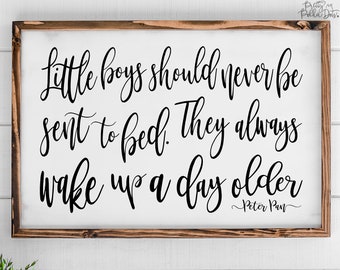 Little boys should never be
sent to bed. They always
wake up a day older
~Peter Pan~